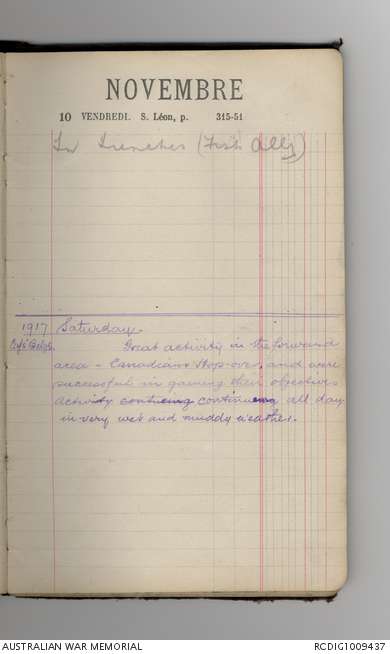 NOVEMBRE
10 VENDREDI. S. Léon, p. 315-51
In Trenches (Fish Ally)
1917 Saturday.
Great activity in the forward
area - Canadians Hop-over, and were
successful in gaining their objectives
Activity continuing all day
in very wet and muddy weather.
AUSTRALIAN WAR MEMORIAL RCDIG1009437